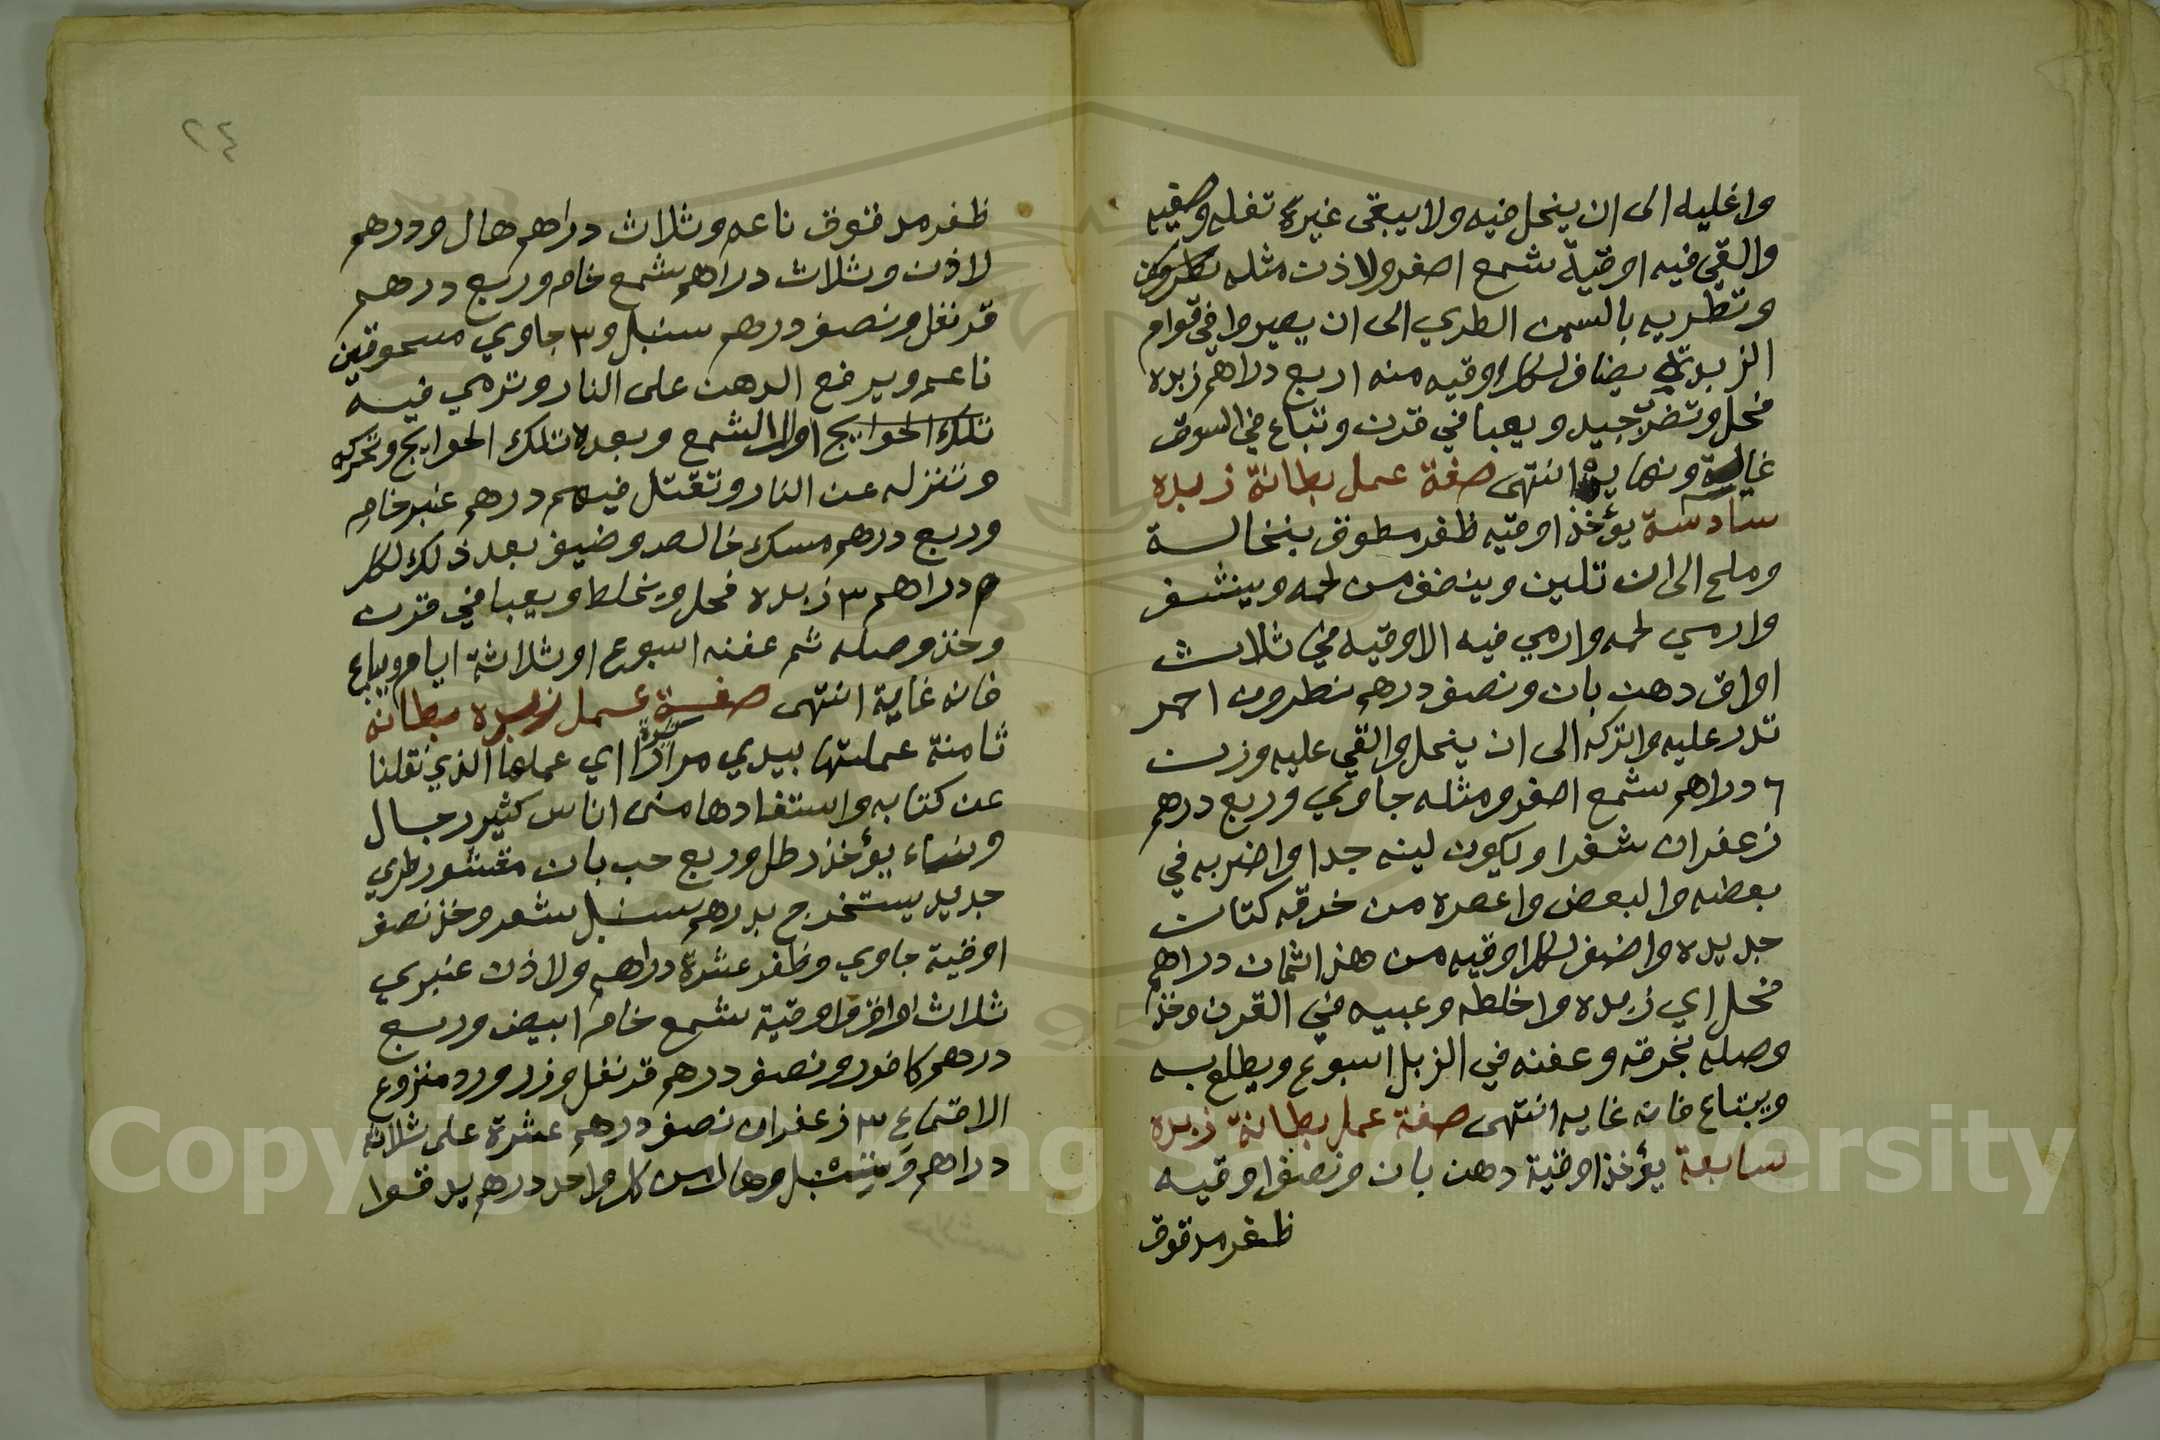 واغليه الى ان ينحل فيه ولا يبقى غيره تفله وصفيه
والقي فيه اوقية شمع اصفر ولاذن مثله
وتطريه بالسمن الطري الى ان يصيروا في قوام
الزبدة يضاف لكل اوقيه منه اربع دراهم زبده
فحل وتضرب جيد ويعبا في قرن وتباع في السوق
غاية ونهايه انتهى صفة عمل بطانة زبده
سادسة يؤخذ اوقيه ظفر مطوق بنخالسة
وملح الى ان تلين وينضف من لحمه وينشف
وارمي لحمه وارمي فيه الاوقيه في ثلاث
اواق دهن بان ونصف درهم نطرون احمر
تدر عليه واتركه الى ان ينحل والقي عليه وزن
٦ دراهم شمع اصفر ومثله جاوي وربع درهم
زعفران شغرا ويكون لينه جدا واضربه في
بعضه والبعض واعصره من خرقه كتان
جديده واضف لكل اوقيه من هذا ثمان دراهم
فحل اي زبده واخلطه وعبيه في القرن وخذ
وصله بخرقه وعفنه في الزبل اسبوع ويطلع به
ويبتاع فانه غايه انتهى صفة عمل بطانة زبده
سابعة يؤخذ اوقية دهن بان ونصف اوقيه
ظفر مدقوق
٢٤
ظفر مدقوق ناعم وثلاث دراهم هال ودرهم
لاذن وثلاث دراهم شمع خام وربع درهم
قرنفل ونصف درهم سنبل و٣ جاوي مسحوقين
ناعم ويرفع الدهن على النار وترمي فيه
تلك الحوايج اولا الشمع وبعده تلك الحوايج وتحركه
وتنزله عن النار وتقتل فيهم درهم عنبر خام
وربع درهم مسك خالص وضيف بعد ذلك لكل
٣ دراهم ٣ زبده فحل ويخلط ويعبا في قرن
وخذ وصله ثم عفنه اسبوع او ثلاثة ايام ويباع
فانه غاية انتهى صفة عمل زبده بطانه
ثامنة عملتها بيدي مرارا كثيرة اي عملها الذي نقلنا
عن كتابه واستفادها منى اناس كثير رجال
ونساء يؤخذ رطل وربع حب بان مقشور طري
جديد يستخرج بدرهم سنبل شعر وخذ نصف
اوقية جاوي وظفر عشرة دراهم ولاذن عنبري
ثلاث اواق واوقية شمع خام ابيض وربع
درهم كافور ونصف درهم قرنفل وزر ورد منزوع
الاقماع ٣ زعفران نصف درهم عشرة على ثلاثة
دراهم وسنبل وهال من كل واحد درهم يدقوا
Copyright © King Saud University